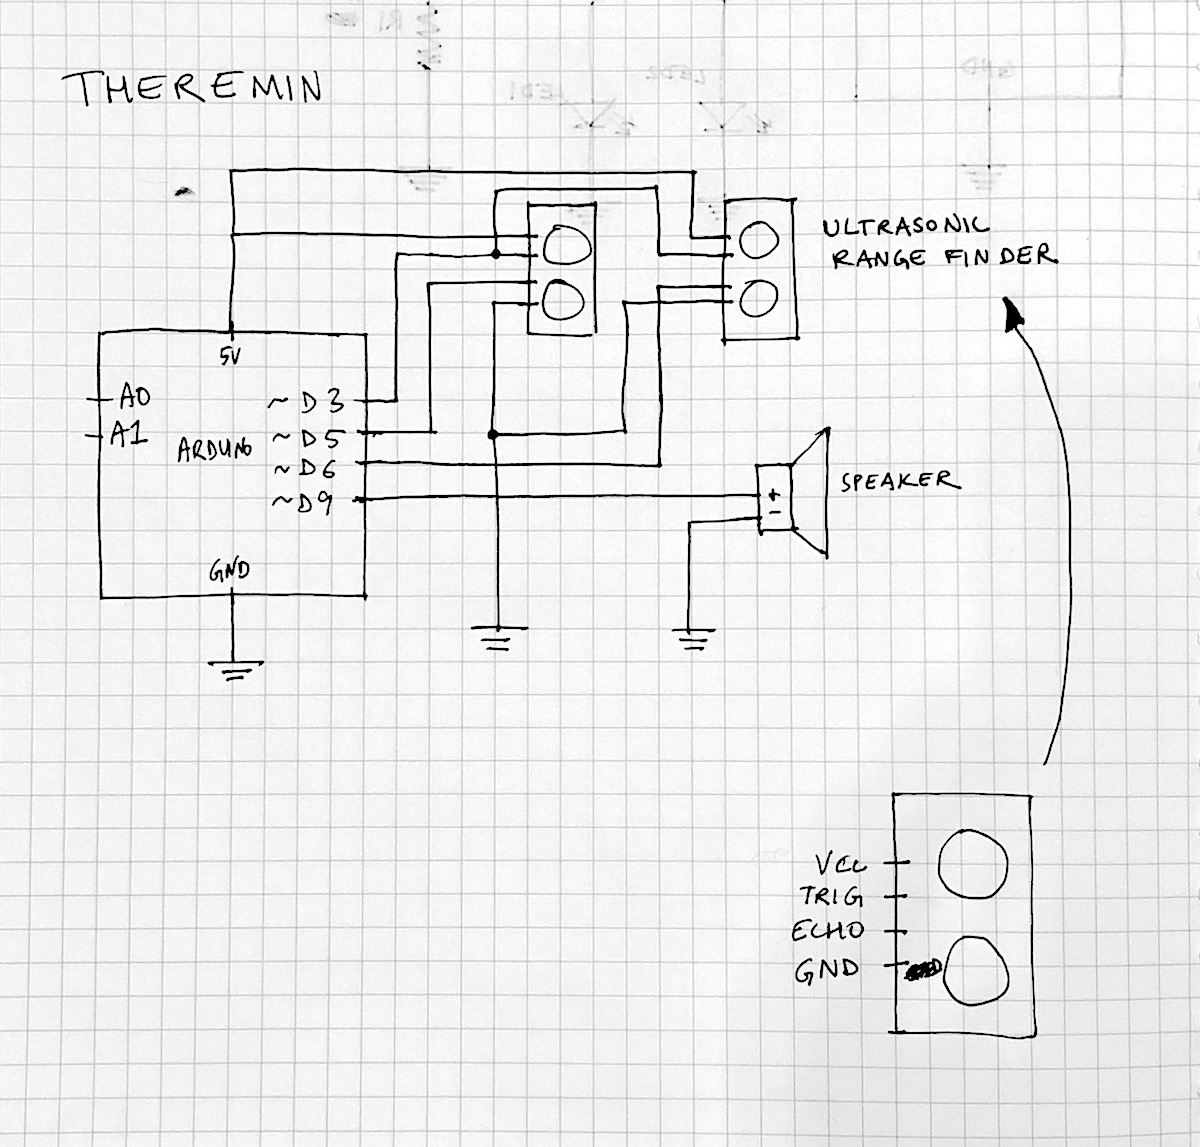 THEREMIN
ULTRASONIC
RANGE FINDER
5V
A0
A1
ARDUINO
~D3
~D5
~D6
~D9
GND
+
-
SPEAKER
VCC
TRIG
ECHO
GND
R1
LED1
LED2
GND